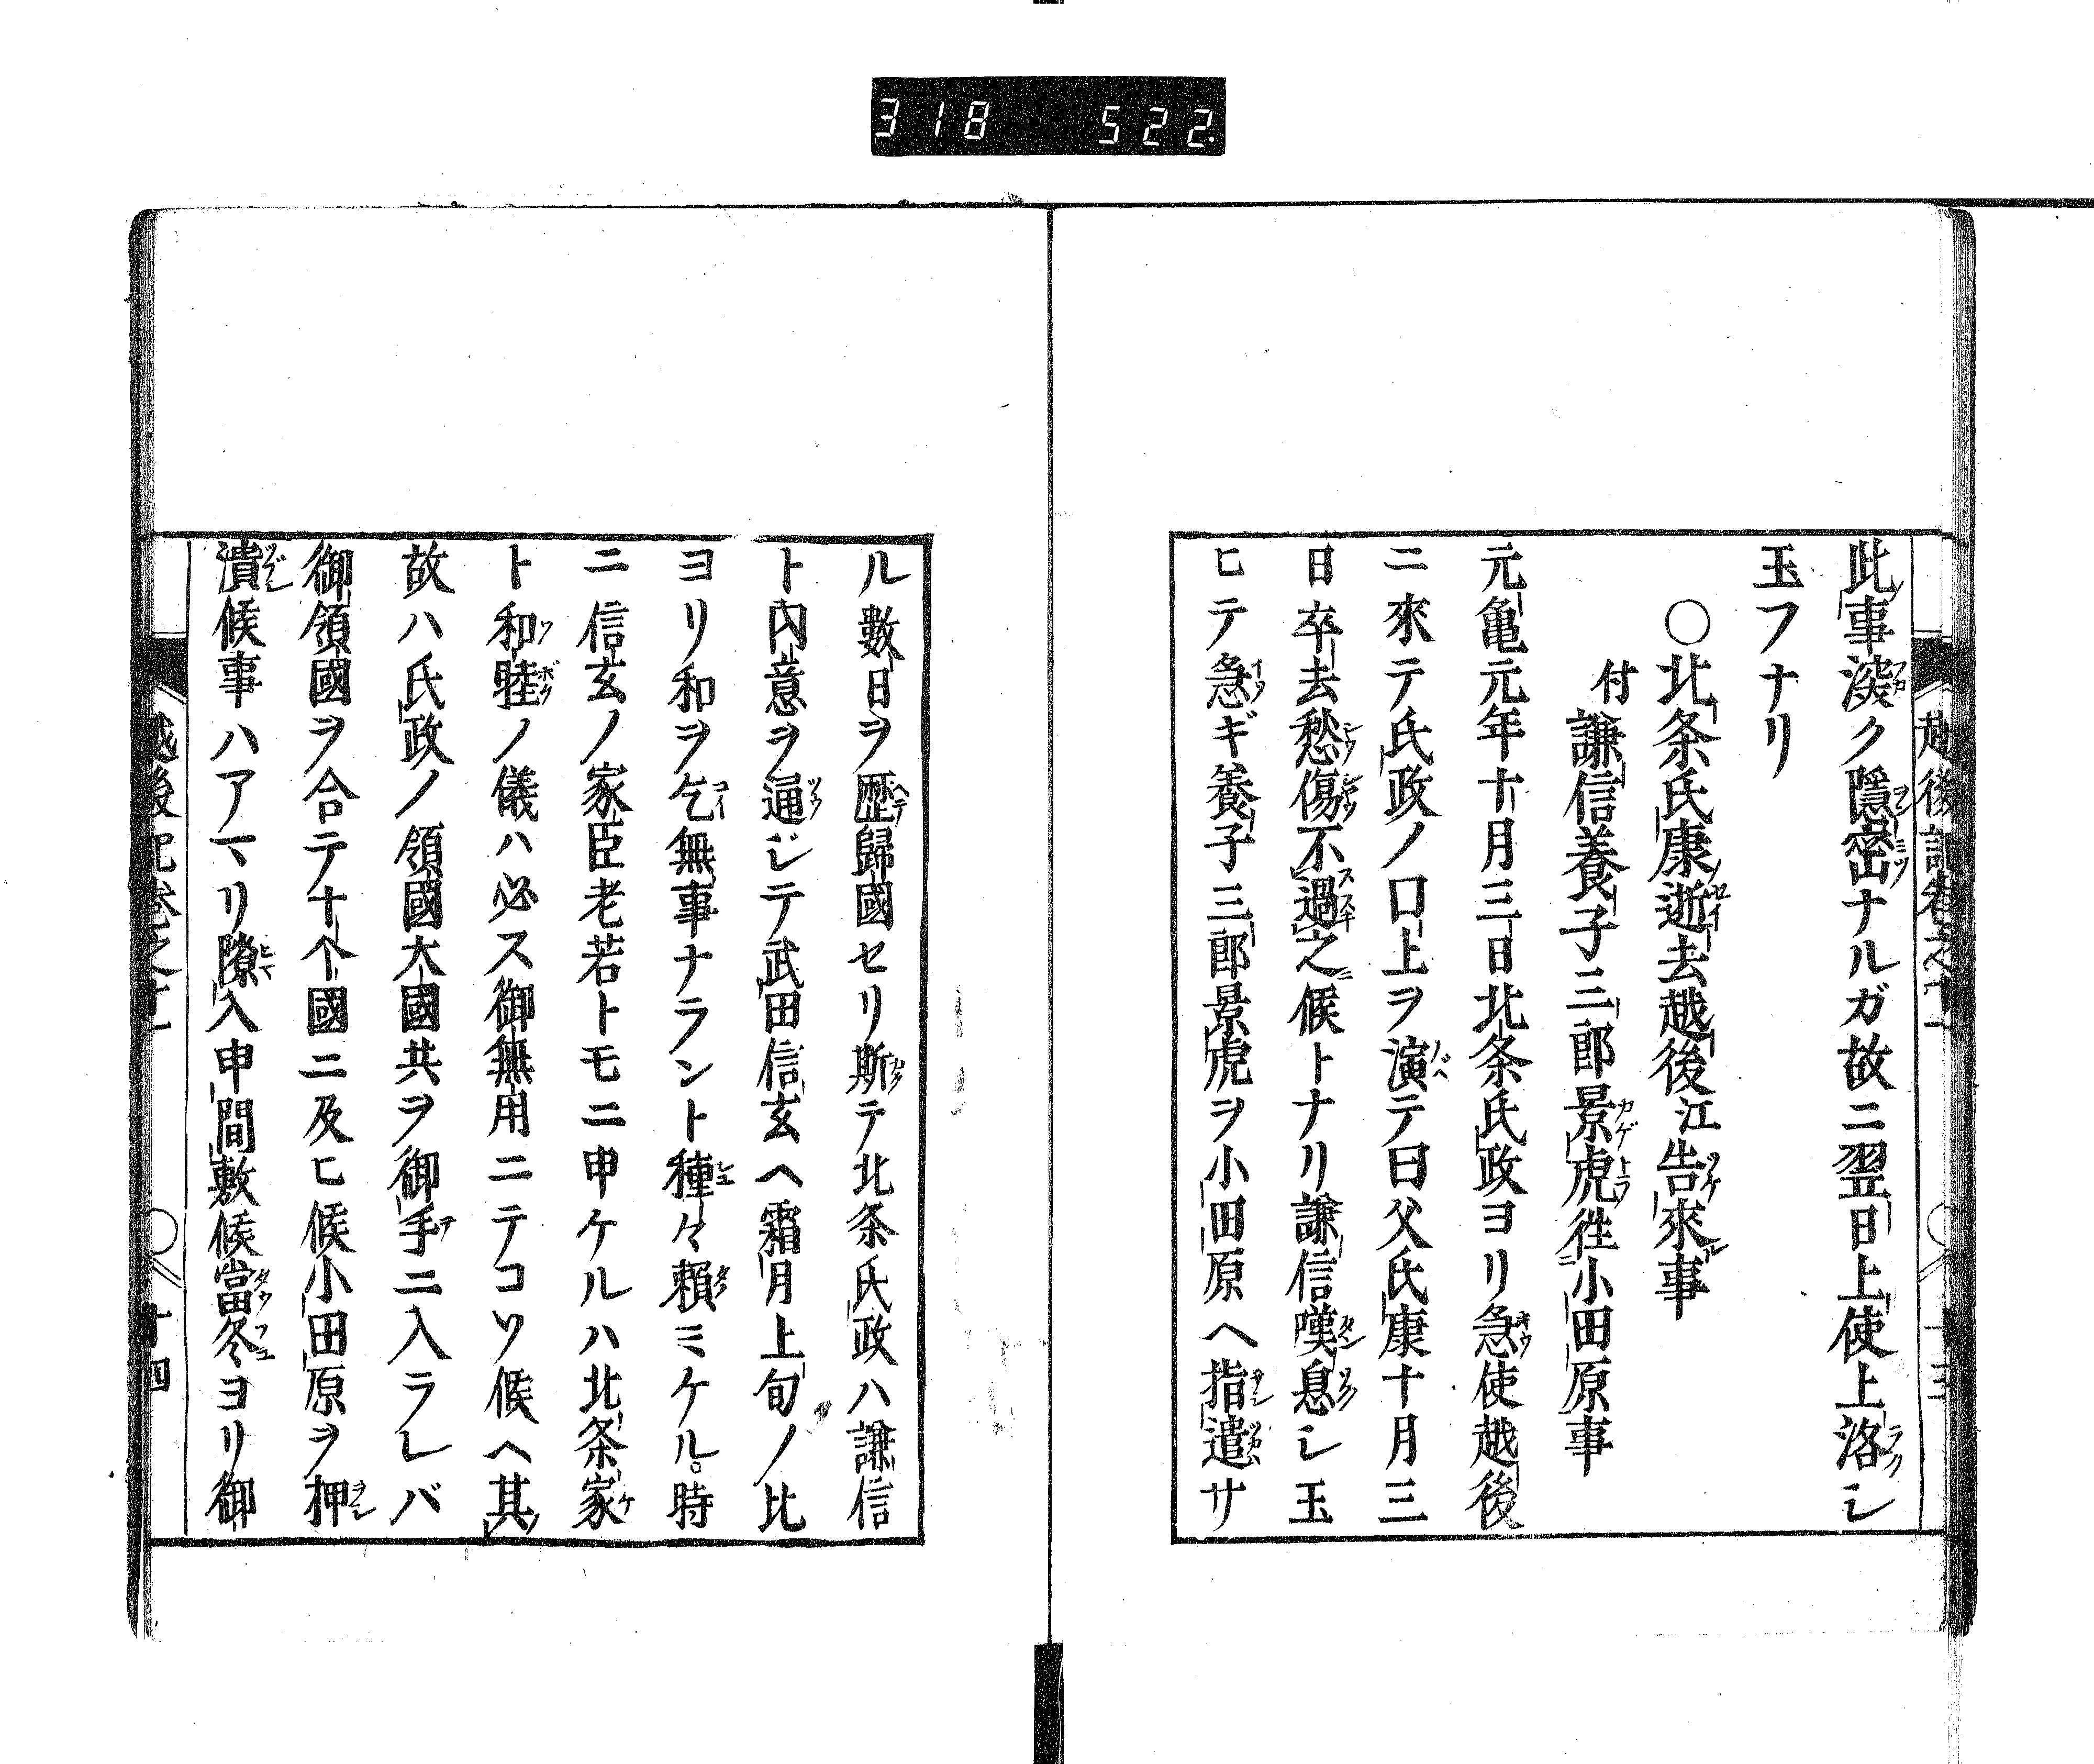 318 522.
越後記巻之十一
此事深ク隱密ナルガ故ニ翌日上使上洛シ
玉フナリ
○北条氏康逝去越後江告來事
付謙信養子三郎景虎徃小田原事
元亀元年十月三日北条氏政ヨリ急使越後
ニ來テ氏政ノ口上ヲ演テ曰父氏康十月三
日卒去愁傷不過之候トナリ謙信嘆息シ玉
ヒテ急ギ養子三郎景虎ヲ小田原ヘ指遣サ
ル數日ヲ歴歸國セリ斯テ北条氏政ハ謙信
ト內意ヲ通ジテ武田信玄ヘ霜月上旬ノ比
ヨリ和ヲ乞無事ナラント種々頼ミケル。時
ニ信玄ノ家臣老若トモニ申ケルハ北条家
ト和睦ノ儀ハ必ス御無用ニテコソ候ヘ其
故ハ氏政ノ領國大國共ヲ御手ニ入ラレバ
御領國ヲ合テ十个國ニ及ヒ候小田原ヲ押
潰候事ハアマリ隙入申間敷候當冬ヨリ御
越後記巻之十一
十四